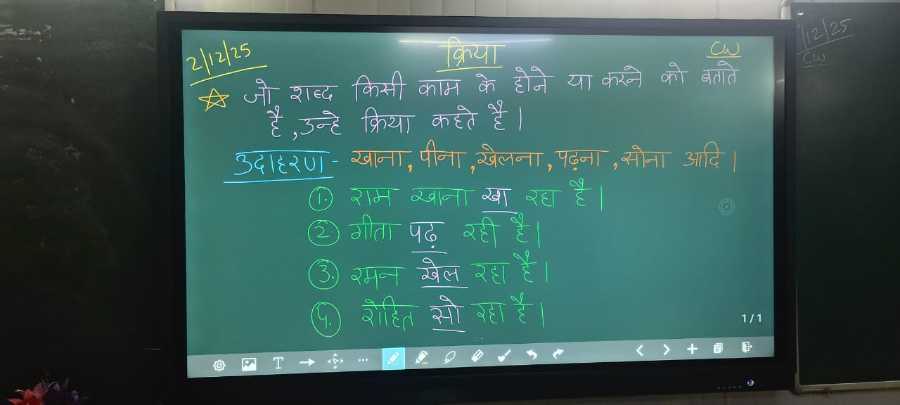 2/12/25 क्रिया CW
जो शब्द किसी काम के होने या करने को बताते
है, उन्हे क्रिया कहते है।
उदाहरण - खाना, पीना, खेलना, पढ़ना, सोना आदि।
1. राम खाना खा रहा है।
2 गीता पढ़ रही है।
3. रमन खेल रहा है।
4. रोहित सो रहा है।
1/1
12/25
CW